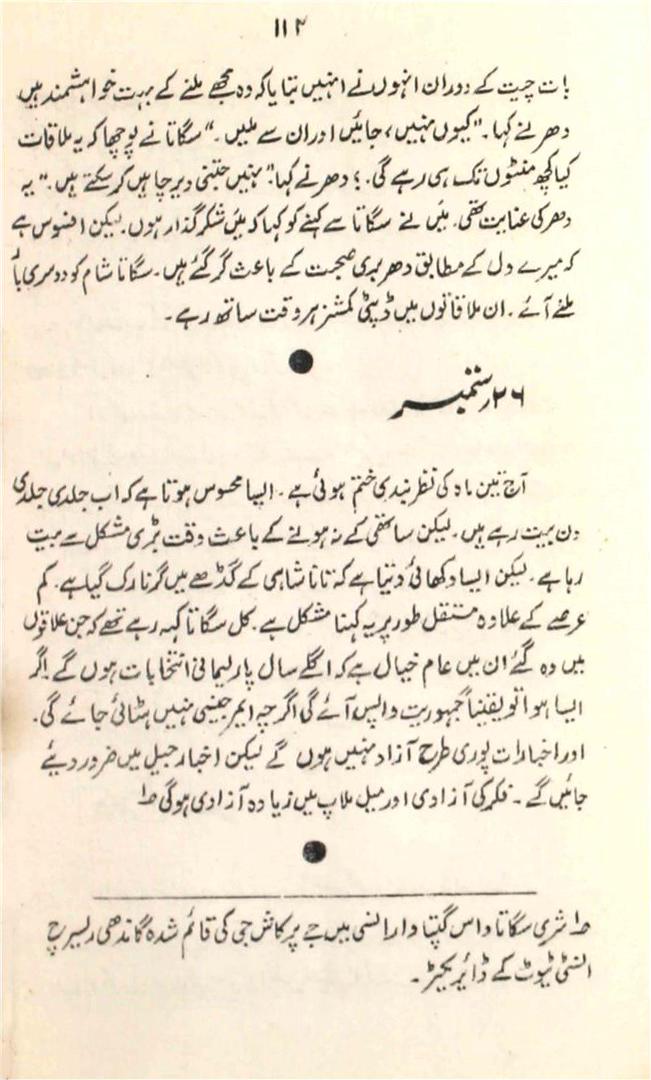 ۱۱۲
بات چیت کے دوران انہوں نے انہیں بتایا کہ وہ مجھے ملنے کے بہت خواہشمند ہیں
دھر نے کہا۔ "کیوں نہیں، جائیں اور ان سے ملیں۔" سگاتا نے پوچھا کہ یہ ملاقات
کیا کچھ منٹوں تک ہی رہے گی۔؛ دھر نے کہا۔" نہیں جتنی دیر چاہیں کر سکتے ہیں۔" یہ
دھر کی عنایت تھی۔ میں نے سگاتا سے کہنے کو کہا کہ میں شکر گذار ہوں۔ لیکن افسوس ہے
کہ میرے دل کے مطابق دھر بری صحبت کے باعث گر گئے ہیں۔ سگاتا شام کو دوسری بار
ملنے آئے۔ ان ملاقاتوں میں ڈپٹی کمشنر ہر وقت ساتھ رہے۔
۲۶ ستمبر
آج تین ماہ کی نظر بندی ختم ہوئی ہے۔ ایسا محسوس ہوتا ہے کہ اب جلدی جلدی
دن بیت رہے ہیں۔ لیکن ساتھی کے نہ ہونے کے باعث وقت بڑی مشکل سے بیت
رہا ہے۔ لیکن ایسا دکھائی دیتا ہے کہ تانا شاہی کے گڈھے میں گرنا رک گیا ہے۔ کم
عرصے کے علاوہ مستقل طور پر یہ کہنا مشکل ہے۔ کل سگاتا کہہ رہے تھے کہ جن علاقوں
میں وہ گئے ان میں عام خیال ہے کہ اگلے سال پارلیمانی انتخابات ہوں گے۔ اگر
ایسا ہوا تو یقیناً جمہوریت واپس آئے گی اگرچہ ایمرجینسی نہیں ہٹائی جائے گی۔
اور اخبارات پوری طرح آزاد نہیں ہوں گے لیکن اخبار جیل میں ضرور دیئے
جائیں گے۔ فکر کی آزادی اور میل ملاپ میں زیادہ آزادی ہوگی ط
ط شری سگاتا داس گپتا وارانسی میں جے پرکاش جی کی قائم شدہ گاندھی ریسرچ
انسٹی ٹیوٹ کے ڈائریکٹر۔